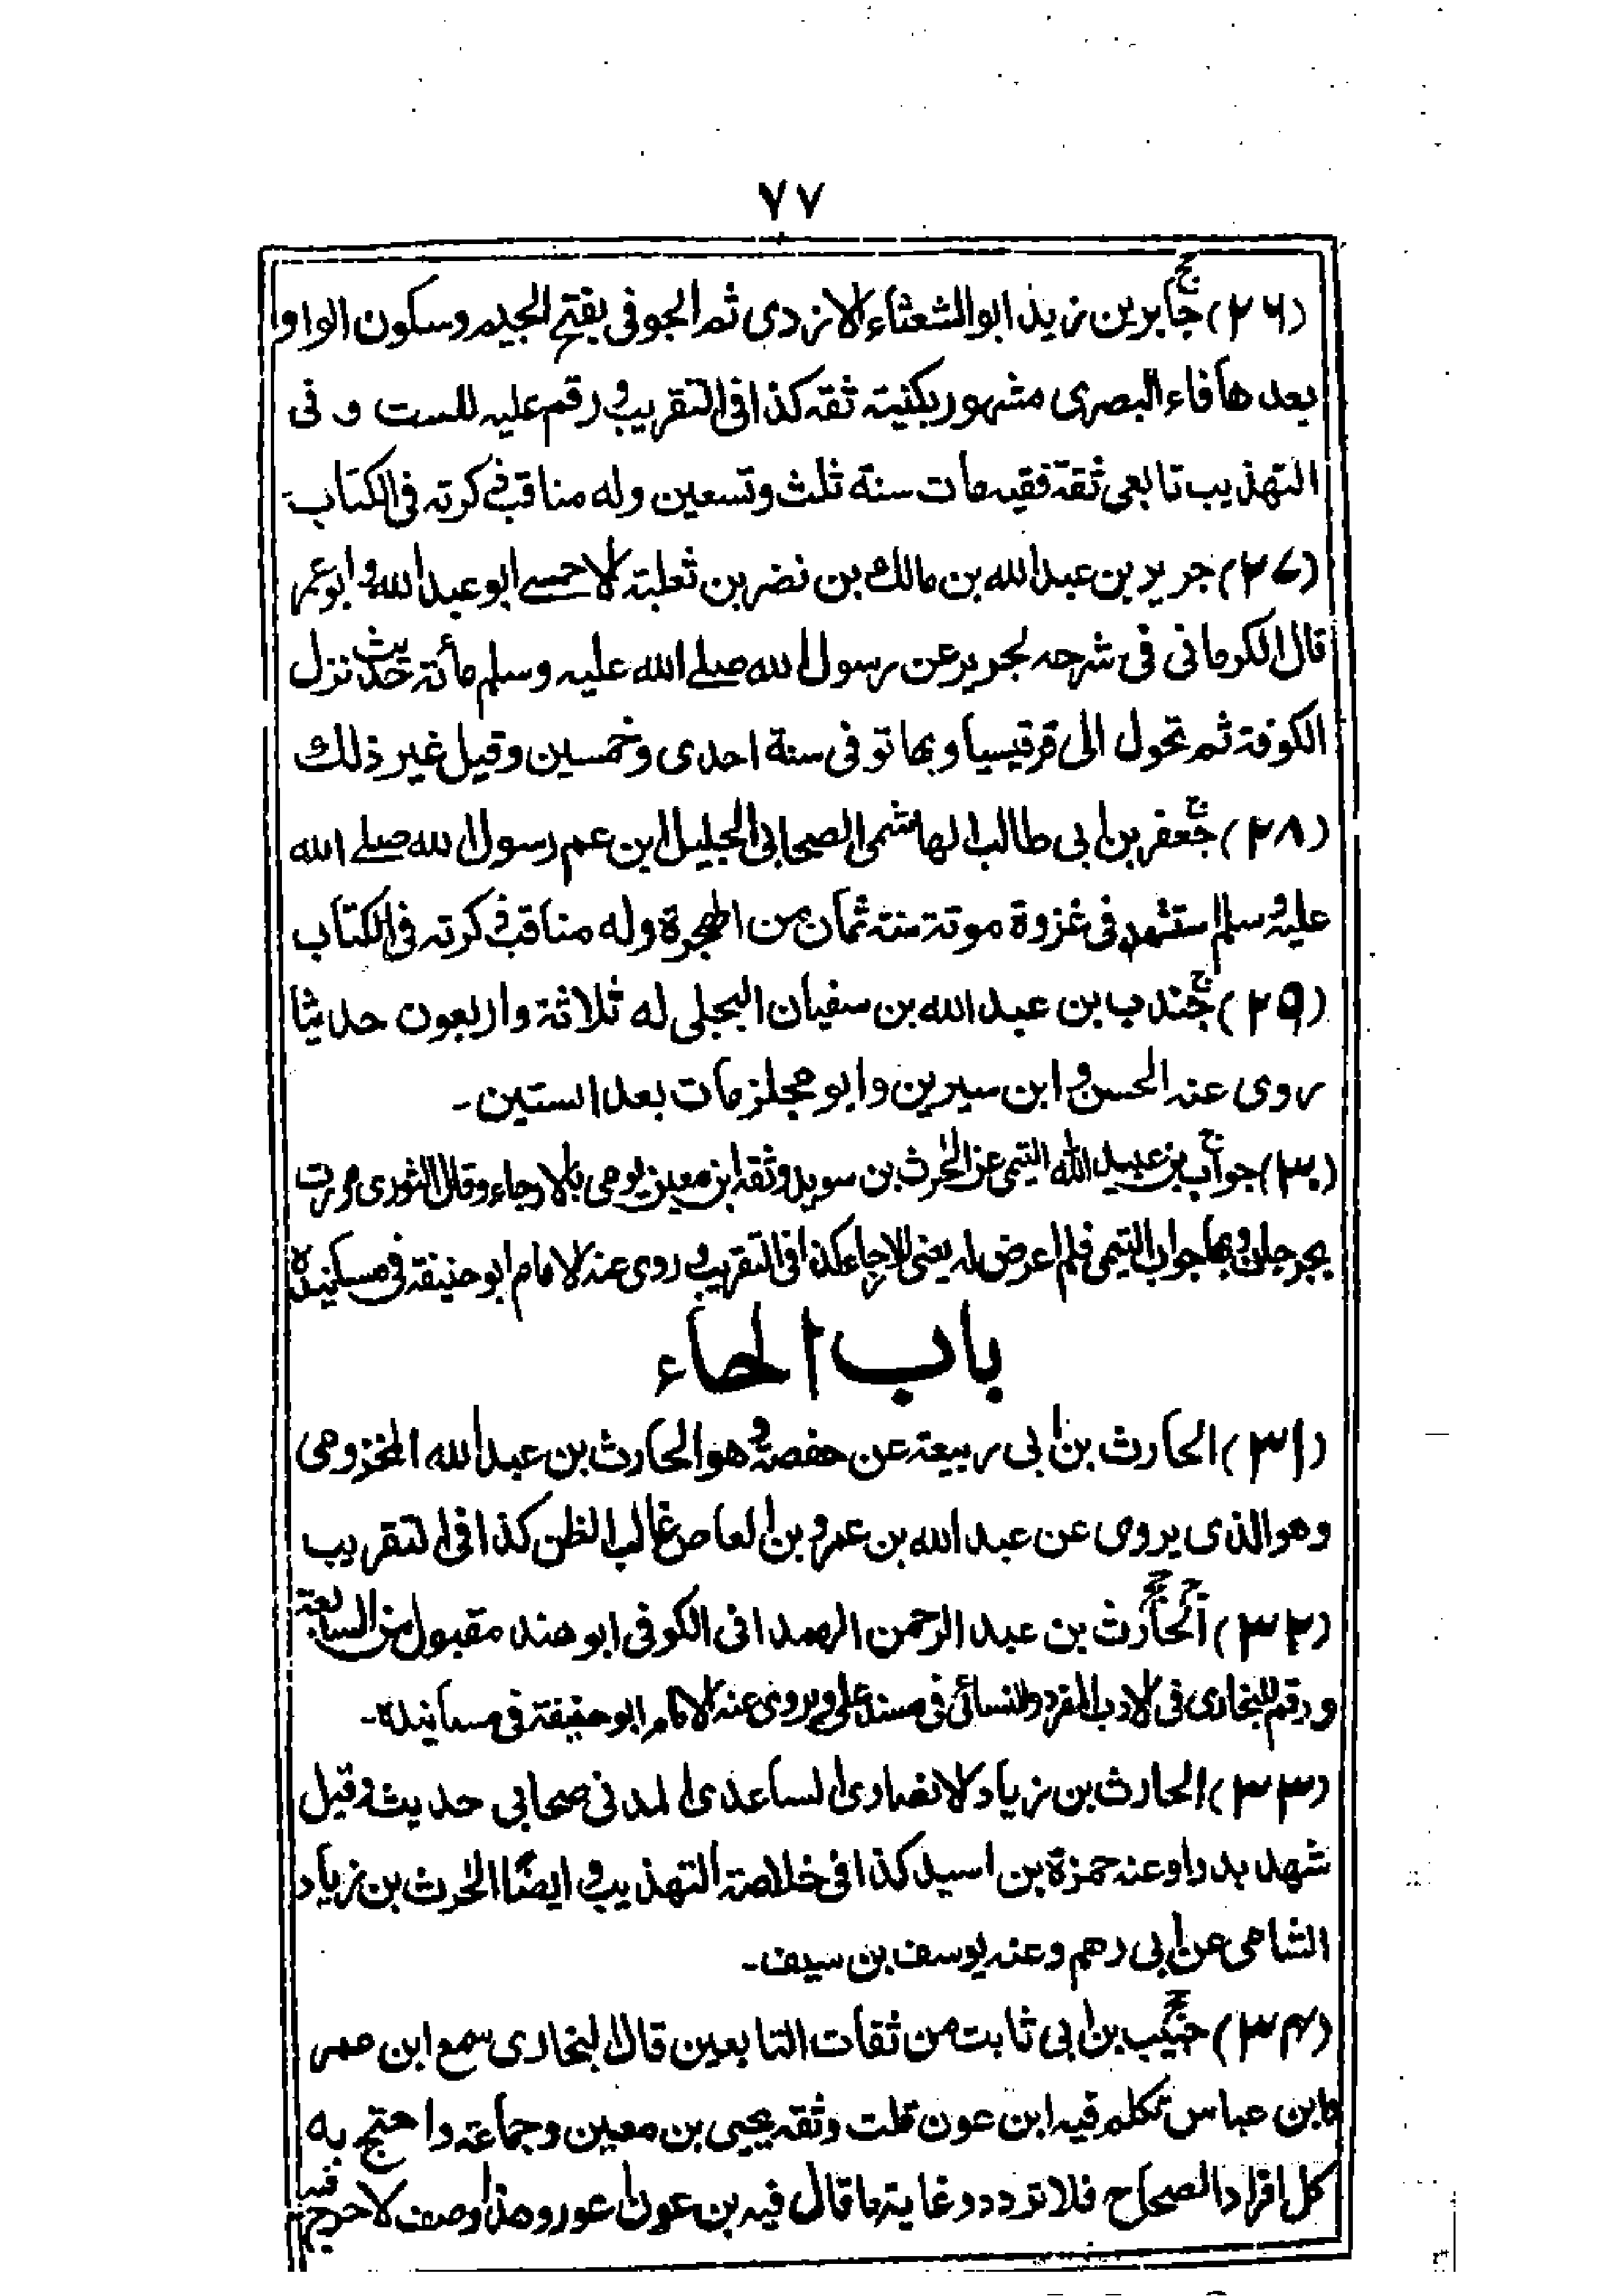 ٧٧
(٢٦) جابر بن زيد ابو الشعثاء الازدى ثم الجوفى بفتح الجيم وسكون الواو
بعدها فاء البصرى مشهور بكنيته ثقه كذا فى التقريب ورقم عليه للست و فى
التهذيب تابعى ثقة فقيه مات سنة ثلث وتسعين وله مناقب ذكرته فى الكتاب-
(٢٧) جرير بن عبد الله بن مالك بن نضر بن ثعلبة الاحمسى ابو عبد الله وابو عمر
قال الكرمانى فى شرحه لجرير عن رسول الله صلے الله عليه وسلم مأئة حديث نزل
الكوفة ثم تحول الى قرقيسيا وبها توفى سنة احدى وخمسين وقيل غير ذلك
(٢٨) جعفر بن ابى طالب الهاشمى الصحابى الجليل ابن عم رسول الله صلے الله
عليه وسلم استشهد فى غزوة موتة سنة ثمان من الهجرة وله مناقب ذكرته فى الكتاب
(٢٩) جندب بن عبد الله بن سفيان البجلى له ثلاثة واربعون حديثا
روى عنه الحسن وابن سيرين وابو مجلز مات بعد الستين-
(٣٠) جواب بن عبيد الله التيمى عن الحرث بن سويد وثقه ابن معين يومى بالارجاء وقال الثورى مررت
بجرجان وبها جواب التيمى فلم اعرض له يعنى للارجاء كذا فى التقريب وروى عنه الامام ابو حنيفة فى مسانيده
باب الحاء
(٣١) الحارث بن ابى ربيعة عن حفصة وهو الحارث بن عبد الله المخزومى
وهو الذى يروى عن عبد الله بن عمرو بن العاص غالب الظن كذا فى التقريب
(٣٢) الحارث بن عبد الرحمن الهمدانى الكوفى ابو هند مقبول من السابعة
ورقم للبخارى فى الادب المفرد والنسائى فى مسند على ويروى عنه الامام ابو حنيفة فى مسانيده-
(٣٣) الحارث بن زياد الانصارى الساعدى المدنى صحابى حديثه وقيل
شهد بدرا وعنه حمزة بن اسيد كذا فى خلاصة التهذيب وايضًا الحرث بن زياد
الشامى عن ابى رهم وعنه يوسف بن سيف-
(٣٤) حبيب بن ابى ثابت من ثقات التابعين قال البخارى سمع ابن عمر
وابن عباس تكلم فيه ابن عون قلت وثقه يحيى بن معين وجماعة واحتج به
كل افراد الصحاح فلا تردد وغاية ما قال فيه بن عون اعور وهذا وصف لا جرح فيه